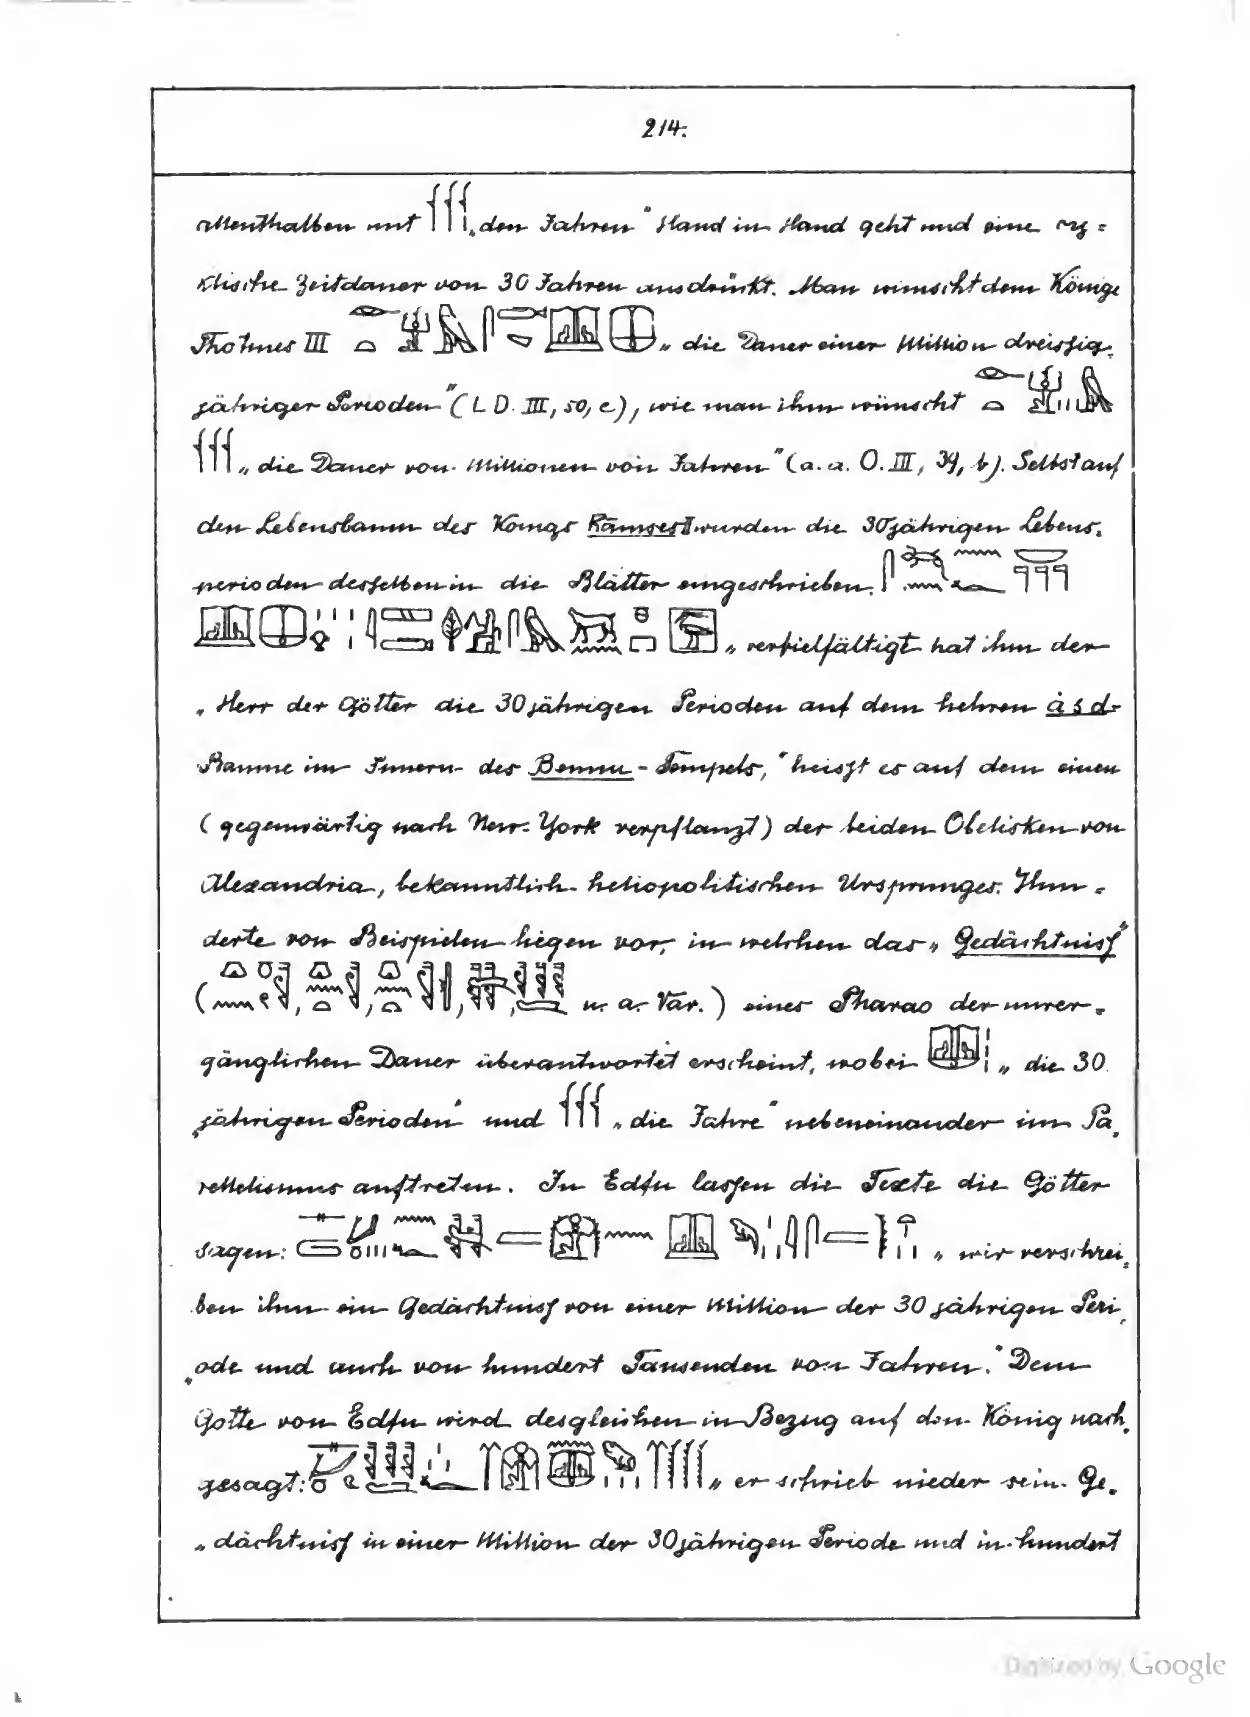 214.
allenthalben mit „den Jahren“ Hand in Hand geht und eine cy=
klische Zeitdauer von 30 Jahren ausdrückt. Man wünscht dem Könige
Thotmes III „die Dauer einer Million dreissig-
jähriger Perioden“ (L. D. III, 50, c), wie man ihm wünscht
„die Dauer von Millionen von Jahren“ (a. a. O. III, 39, b). Selbst auf
den Lebensbaum des Königs Ramses II wurden die 30jährigen Lebens-
perioden desselben in die Blätter eingeschrieben.
„verfielfältigt hat ihm der
„Herr der Götter die 30jährigen Perioden auf dem hehren ȧšd-
Baume im Innern des Bennu-Tempels,“ heiszt es auf dem einen
(gegenwärtig nach New-York verpflanzt) der beiden Obelisken von
Alexandria, bekanntlich heliopolitischen Ursprunges. Hun=
derte von Beispielen liegen vor, in welchen das „Gedächtniss“
( , , , , u. a. Var.) eines Pharao der unver=
gänglichen Dauer überantwortet erscheint, wobei „die 30
jährigen Perioden“ und „die Jahre“ nebeneinander im Pa-
rellelismus auftreten. In Edfu lassen die Texte die Götter
sagen: „wir verschrei=
ben ihm ein Gedächtniss von einer Million der 30jährigen Peri-
„ode und auch von hundert Tausenden von Jahren.“ Dem
Gotte von Edfu wird desgleichen in Bezug auf den König nach-
gesagt: „er schrieb nieder sein Ge-
„dächtniss in einer Million der 30jährigen Periode und in hundert
Digitized by Google